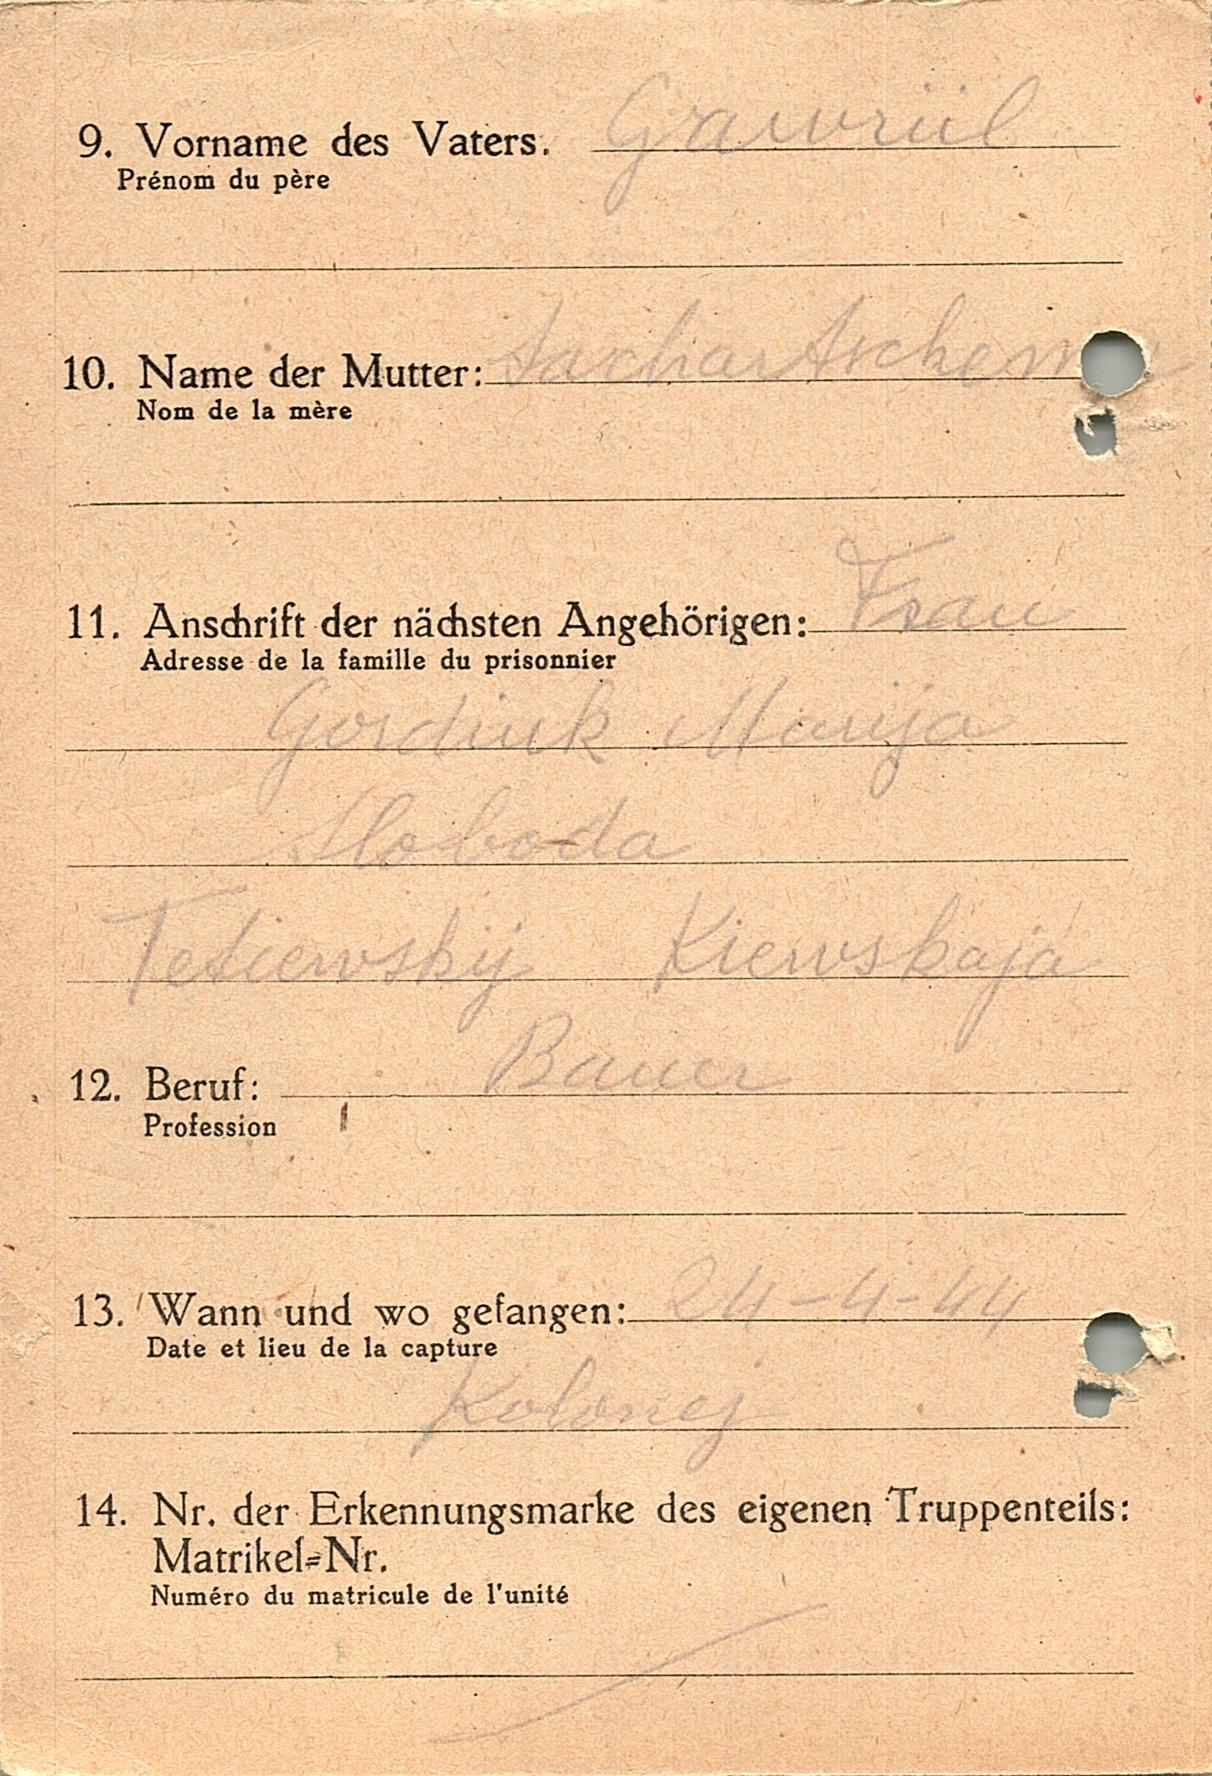 9. Vorname des Vaters. Gawriil
Prénom du père
10. Name der Mutter:
Nom de la mère
11. Anschrift der nächsten Angehörigen: Frau
Adresse de la famille du prisonnier
Gordiuk Marija
Sloboda
Tetiewskij Kiewskaja
12. Beruf: Bauer
Profession
13. Wann und wo gefangen: 24-4-44
Date et lieu de la capture
Kolonej
14. Nr. der Erkennungsmarke des eigenen Truppenteils:
Matrikel=Nr.
Numéro du matricule de l'unité